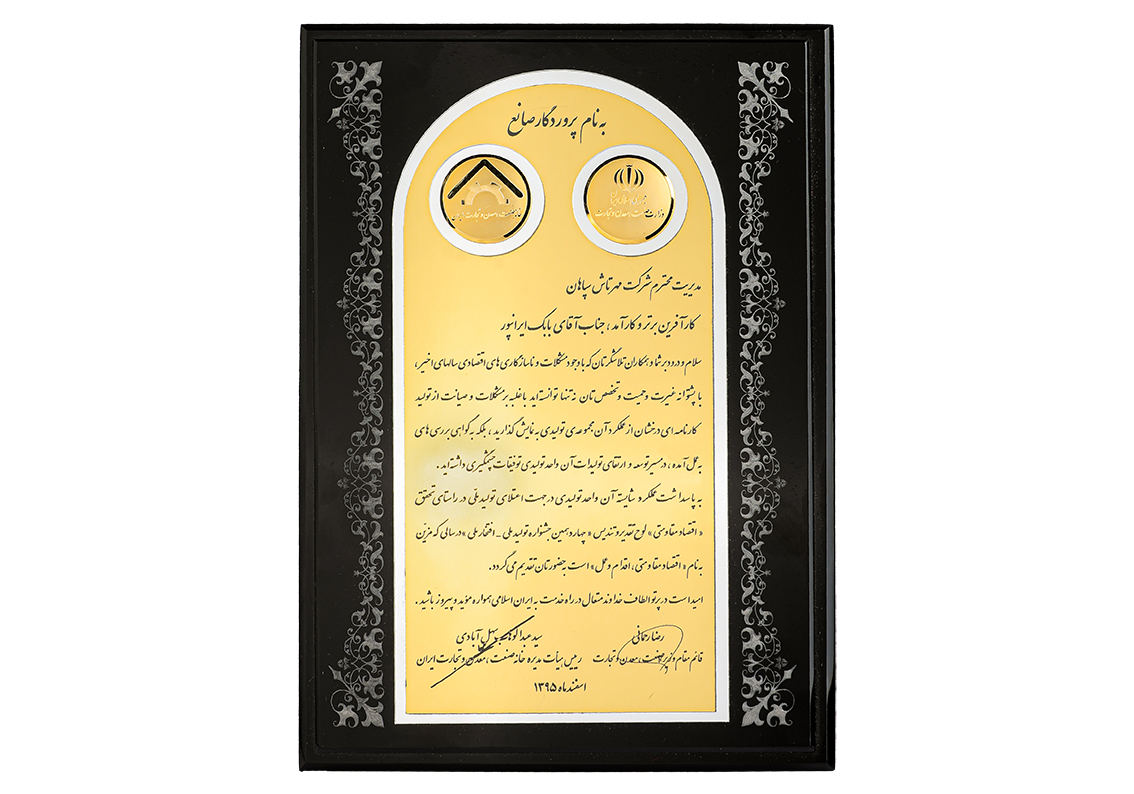 به نام پروردگار صانع
وزارت صنعت، معدن و تجارت
خانه صنعت، معدن و تجارت ایران
مدیریت محترم شرکت مهرتاش سپاهان
کارآفرین برتر و کارآمد، جناب آقای بابک ایرانپور
سلام و درود بر شما و همکاران تلاشگرتان که با وجود مشکلات و ناسازگاری های اقتصادی سالهای اخیر،
با پشتوانه غیرت و حمیت و تخصص تان نه تنها توانسته اید با غلبه بر مشکلات و صیانت از تولید
کارنامه ای درخشان از عملکرد آن مجموعه ی تولیدی به نمایش گذارید، بلکه به گواهی بررسی های
به عمل آمده، در مسیر توسعه و ارتقای تولیدات آن واحد تولیدی توفیقات چشمگیری داشته اید.
به پاسداشت عملکرد شایسته آن واحد تولیدی در جهت اعتلای تولید ملی در راستای تحقق
«اقتصاد مقاومتی» لوح تقدیر و تندیس «چهاردهمین جشنواره تولید ملی _ افتخار ملی» در سالی که مزین
به نام «اقتصاد مقاومتی، اقدام و عمل» است به حضورتان تقدیم می گردد.
امید است در پرتو الطاف خداوند متعال در راه خدمت به ایران اسلامی همواره مؤید و پیروز باشید.
رضا رحمانی سید عبدالوهاب سهل آبادی
قائم مقام وزیر صنعت، معدن و تجارت رییس هیأت مدیره خانه صنعت، معدن و تجارت ایران
اسفندماه ۱۳۹۵